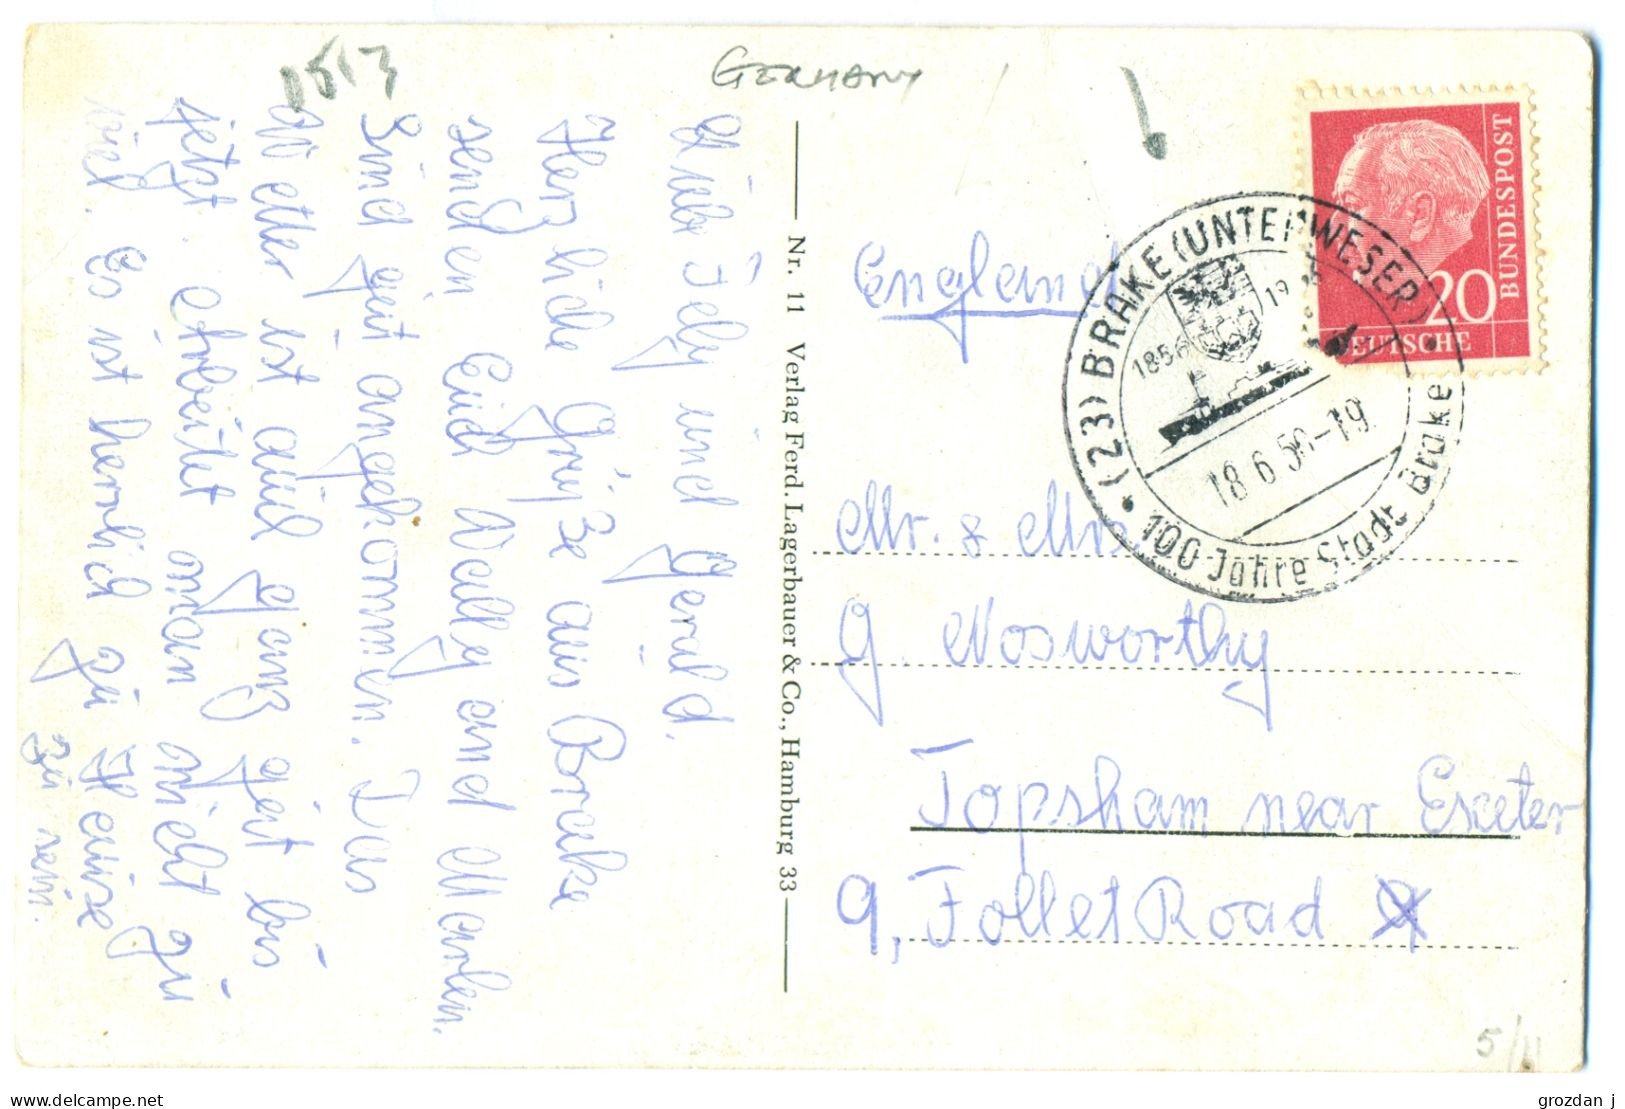 GERMANY
0513
Liebe Tely und Gerald.
Herzliche Grüße aus Brake
senden Euch Wally und Marlen.
Sind gut angekommen. Das
Wetter ist auch ganz gut bis
jetzt. Arbeitet man nicht zu
viel. Es ist herrlich zu Hause
zu sein.
Nr. 11 Verlag Ferd. Lagerbauer & Co., Hamburg 33
England
Mr. & Mrs
G. Nosworthy
Topsham near Exeter
9, Follet Road
DEUTSCHE BUNDESPOST
20
(23) BRAKE (UNTERWESER)
1856 1956
18.6.56-19
100 Jahre Stadt Brake
5/11
grozdan j